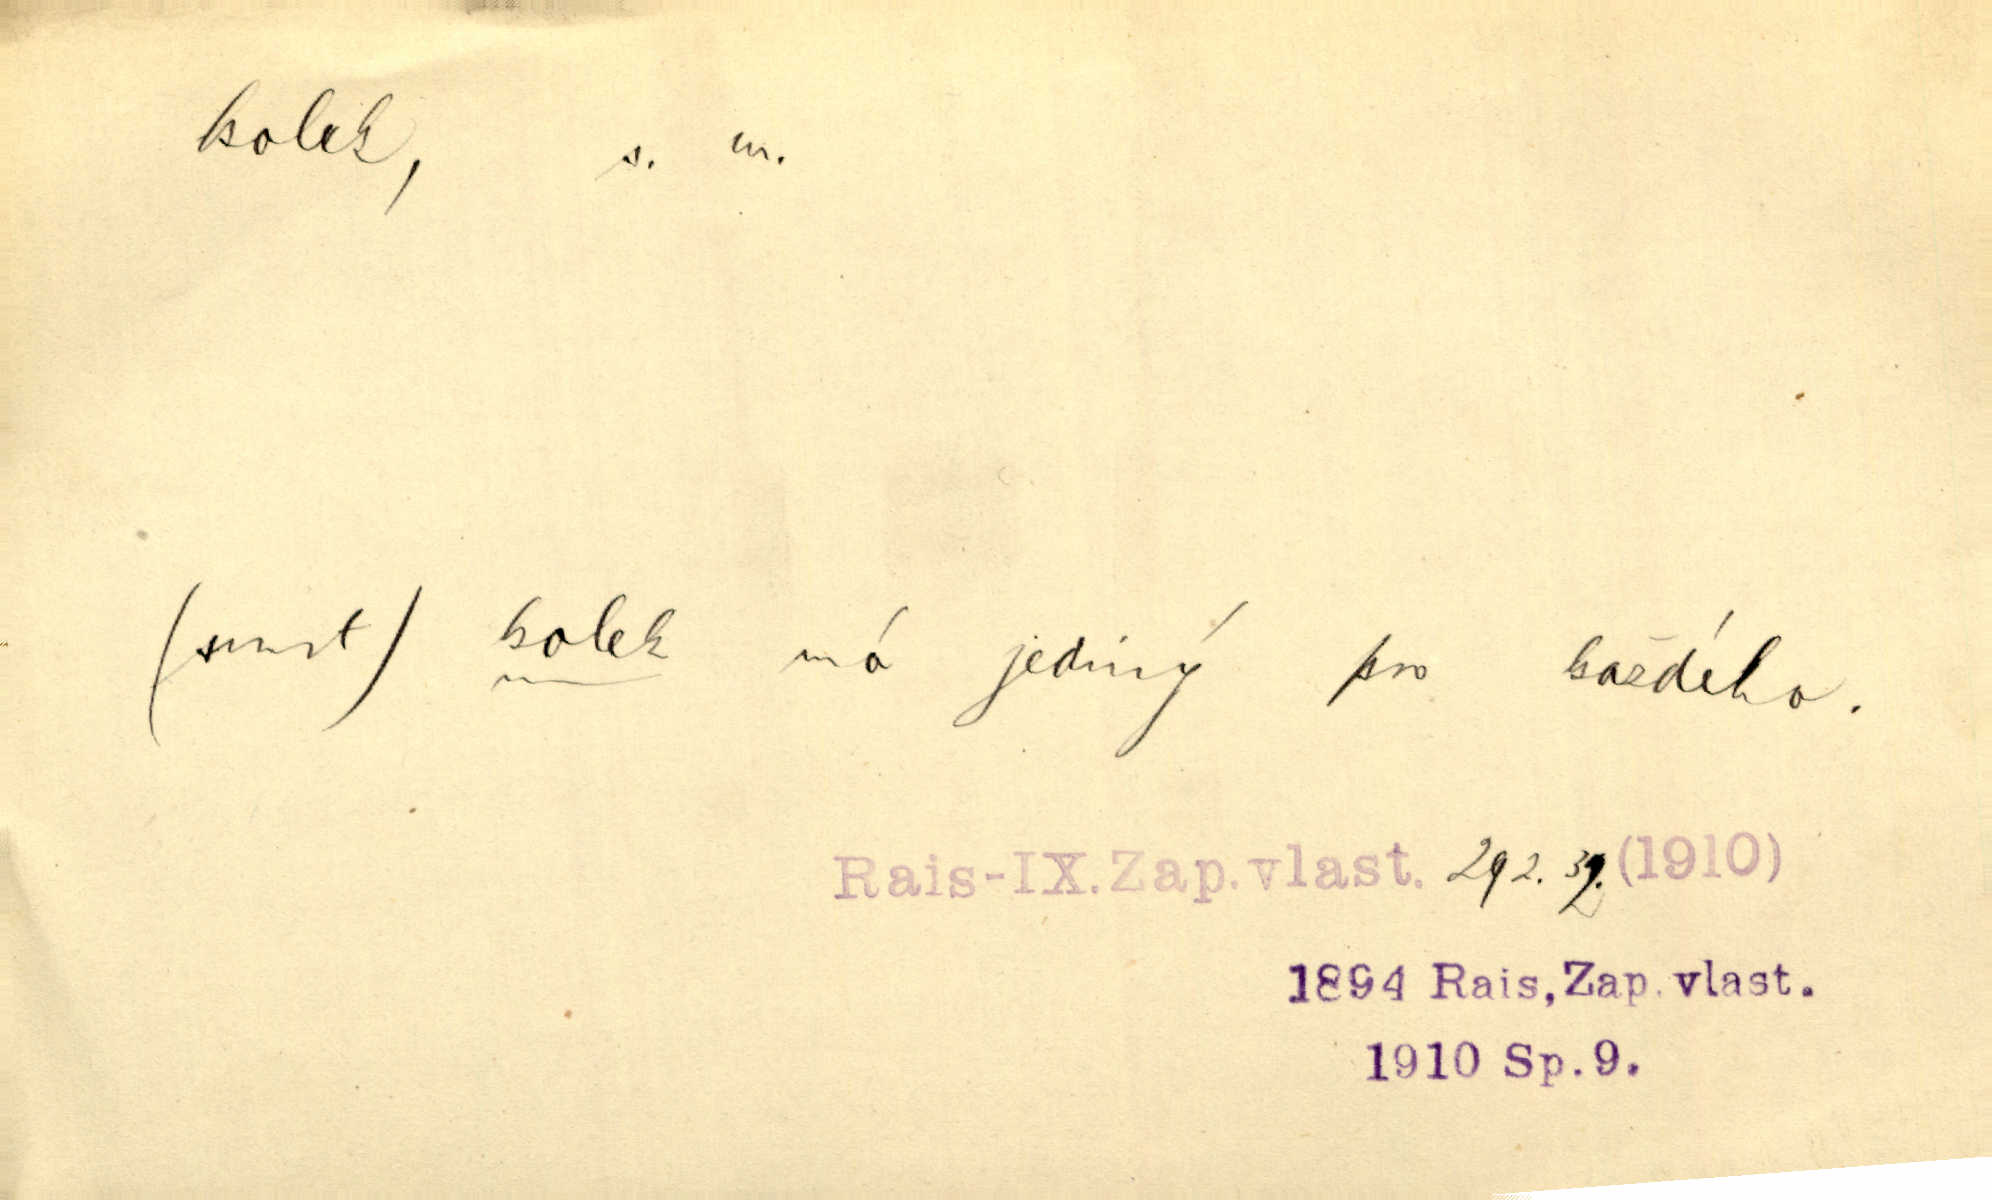 kolek, s. m.
(smrt) kolek má jediný pro každého.
Rais-IX.Zap.vlast. 292. (1910)
1894 Rais,Zap.vlast.
1910 Sp.9.